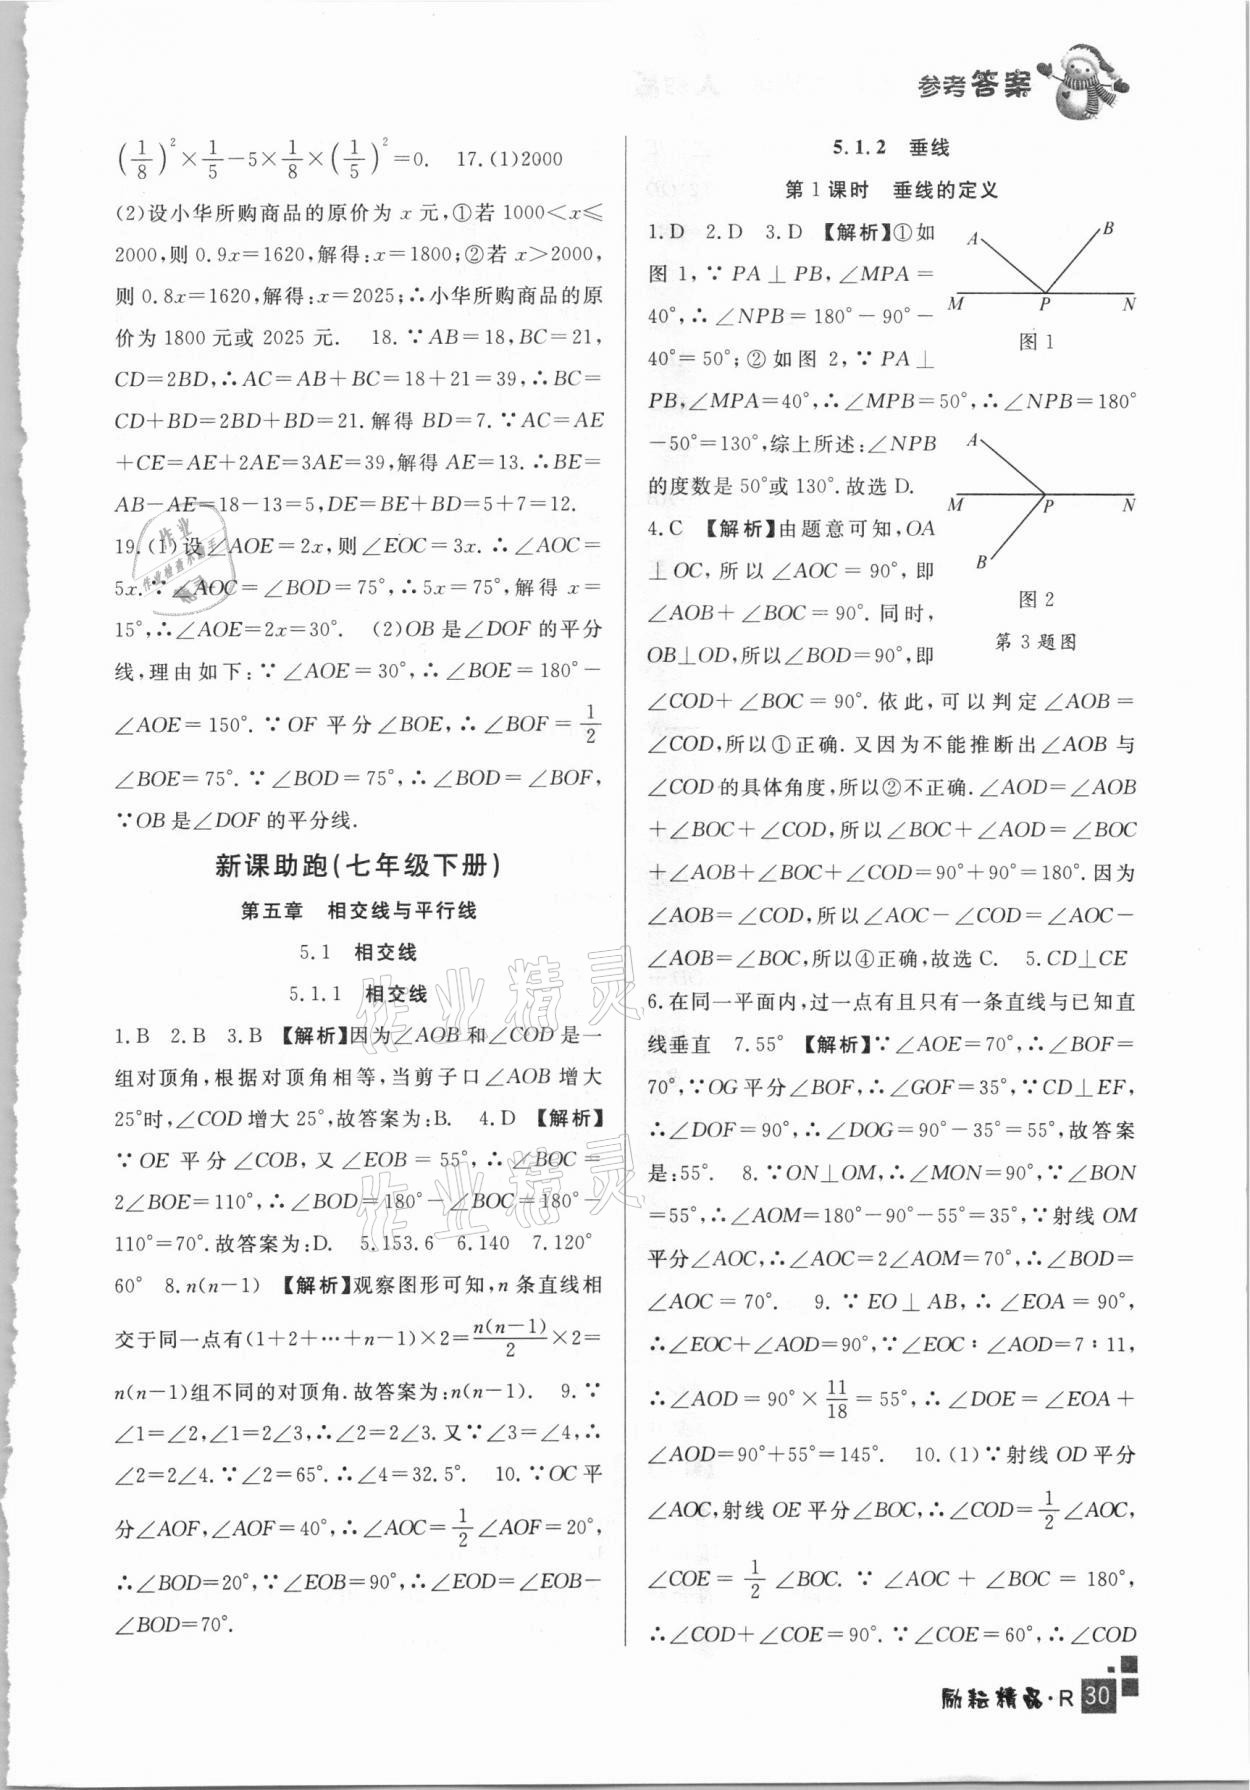 参考答案
(1/8)²×1/5−5×1/8×(1/5)²=0. 17.(1)2000
(2)设小华所购商品的原价为 x 元,①若 1000<x≤
2000,则 0.9x=1620,解得:x=1800;②若 x>2000,
则 0.8x=1620,解得:x=2025;∴小华所购商品的原
价为 1800 元或 2025 元. 18.∵AB=18,BC=21,
CD=2BD,∴AC=AB+BC=18+21=39,∴BC=
CD+BD=2BD+BD=21.解得 BD=7.∵AC=AE
+CE=AE+2AE=3AE=39,解得 AE=13.∴BE=
AB−AE=18−13=5,DE=BE+BD=5+7=12.
19.(1)设∠AOE=2x,则∠EOC=3x.∴∠AOC=
5x.∵∠AOC=∠BOD=75°,∴5x=75°,解得 x=
15°,∴∠AOE=2x=30°. (2)OB 是∠DOF 的平分
线,理由如下:∵∠AOE=30°,∴∠BOE=180°−
∠AOE=150°.∵OF 平分∠BOE,∴∠BOF=1/2
∠BOE=75°.∵∠BOD=75°,∴∠BOD=∠BOF,
∵OB 是∠DOF 的平分线.
新课助跑(七年级下册)
第五章 相交线与平行线
5.1 相交线
5.1.1 相交线
1.B 2.B 3.B 【解析】因为∠AOB 和∠COD 是一
组对顶角,根据对顶角相等,当剪子口∠AOB 增大
25°时,∠COD 增大 25°,故答案为:B. 4.D 【解析】
∵OE 平分∠COB,又∠EOB=55°,∴∠BOC=
2∠BOE=110°,∴∠BOD=180°−∠BOC=180°−
110°=70°.故答案为:D. 5.153.6 6.140 7.120°
60° 8.n(n−1) 【解析】观察图形可知,n 条直线相
交于同一点有(1+2+…+n−1)×2=n(n−1)/2×2=
n(n−1)组不同的对顶角.故答案为:n(n−1). 9.∵
∠1=∠2,∠1=2∠3,∴∠2=2∠3.又∵∠3=∠4,∴
∠2=2∠4.∵∠2=65°.∴∠4=32.5°. 10.∵OC 平
分∠AOF,∠AOF=40°,∴∠AOC=1/2∠AOF=20°,
∴∠BOD=20°,∵∠EOB=90°,∴∠EOD=∠EOB−
∠BOD=70°.
5.1.2 垂线
第 1 课时 垂线的定义
1.D 2.D 3.D 【解析】①如
图 1,∵PA⊥PB,∠MPA=
40°,∴∠NPB=180°−90°−
40°=50°;②如图 2,∵PA⊥
PB,∠MPA=40°,∴∠MPB=50°,∴∠NPB=180°
−50°=130°,综上所述:∠NPB
的度数是 50°或 130°.故选 D.
A B
M P N
图 1
A
M P N
B
图 2
第 3 题图
4.C 【解析】由题意可知,OA
⊥OC,所以∠AOC=90°,即
∠AOB+∠BOC=90°.同时,
OB⊥OD,所以∠BOD=90°,即
∠COD+∠BOC=90°.依此,可以判定∠AOB=
∠COD,所以①正确.又因为不能推断出∠AOB 与
∠COD 的具体角度,所以②不正确.∠AOD=∠AOB
+∠BOC+∠COD,所以∠BOC+∠AOD=∠BOC
+∠AOB+∠BOC+∠COD=90°+90°=180°.因为
∠AOB=∠COD,所以∠AOC−∠COD=∠AOC−
∠AOB=∠BOC,所以④正确,故选 C. 5.CD⊥CE
6.在同一平面内,过一点有且只有一条直线与已知直
线垂直 7.55° 【解析】∵∠AOE=70°,∴∠BOF=
70°,∵OG 平分∠BOF,∴∠GOF=35°,∵CD⊥EF,
∴∠DOF=90°,∴∠DOG=90°−35°=55°,故答案
是:55°. 8.∵ON⊥OM,∴∠MON=90°,∵∠BON
=55°,∴∠AOM=180°−90°−55°=35°,∵射线 OM
平分∠AOC,∴∠AOC=2∠AOM=70°,∴∠BOD=
∠AOC=70°. 9.∵EO⊥AB,∴∠EOA=90°,
∴∠EOC+∠AOD=90°,∵∠EOC∶∠AOD=7∶11,
∴∠AOD=90°×11/18=55°,∴∠DOE=∠EOA+
∠AOD=90°+55°=145°. 10.(1)∵射线 OD 平分
∠AOC,射线 OE 平分∠BOC,∴∠COD=1/2∠AOC,
∠COE=1/2∠BOC.∵∠AOC+∠BOC=180°,
∴∠COD+∠COE=90°.∵∠COE=60°,∴∠COD
励耘精品·R 30
作业精灵
作业精灵